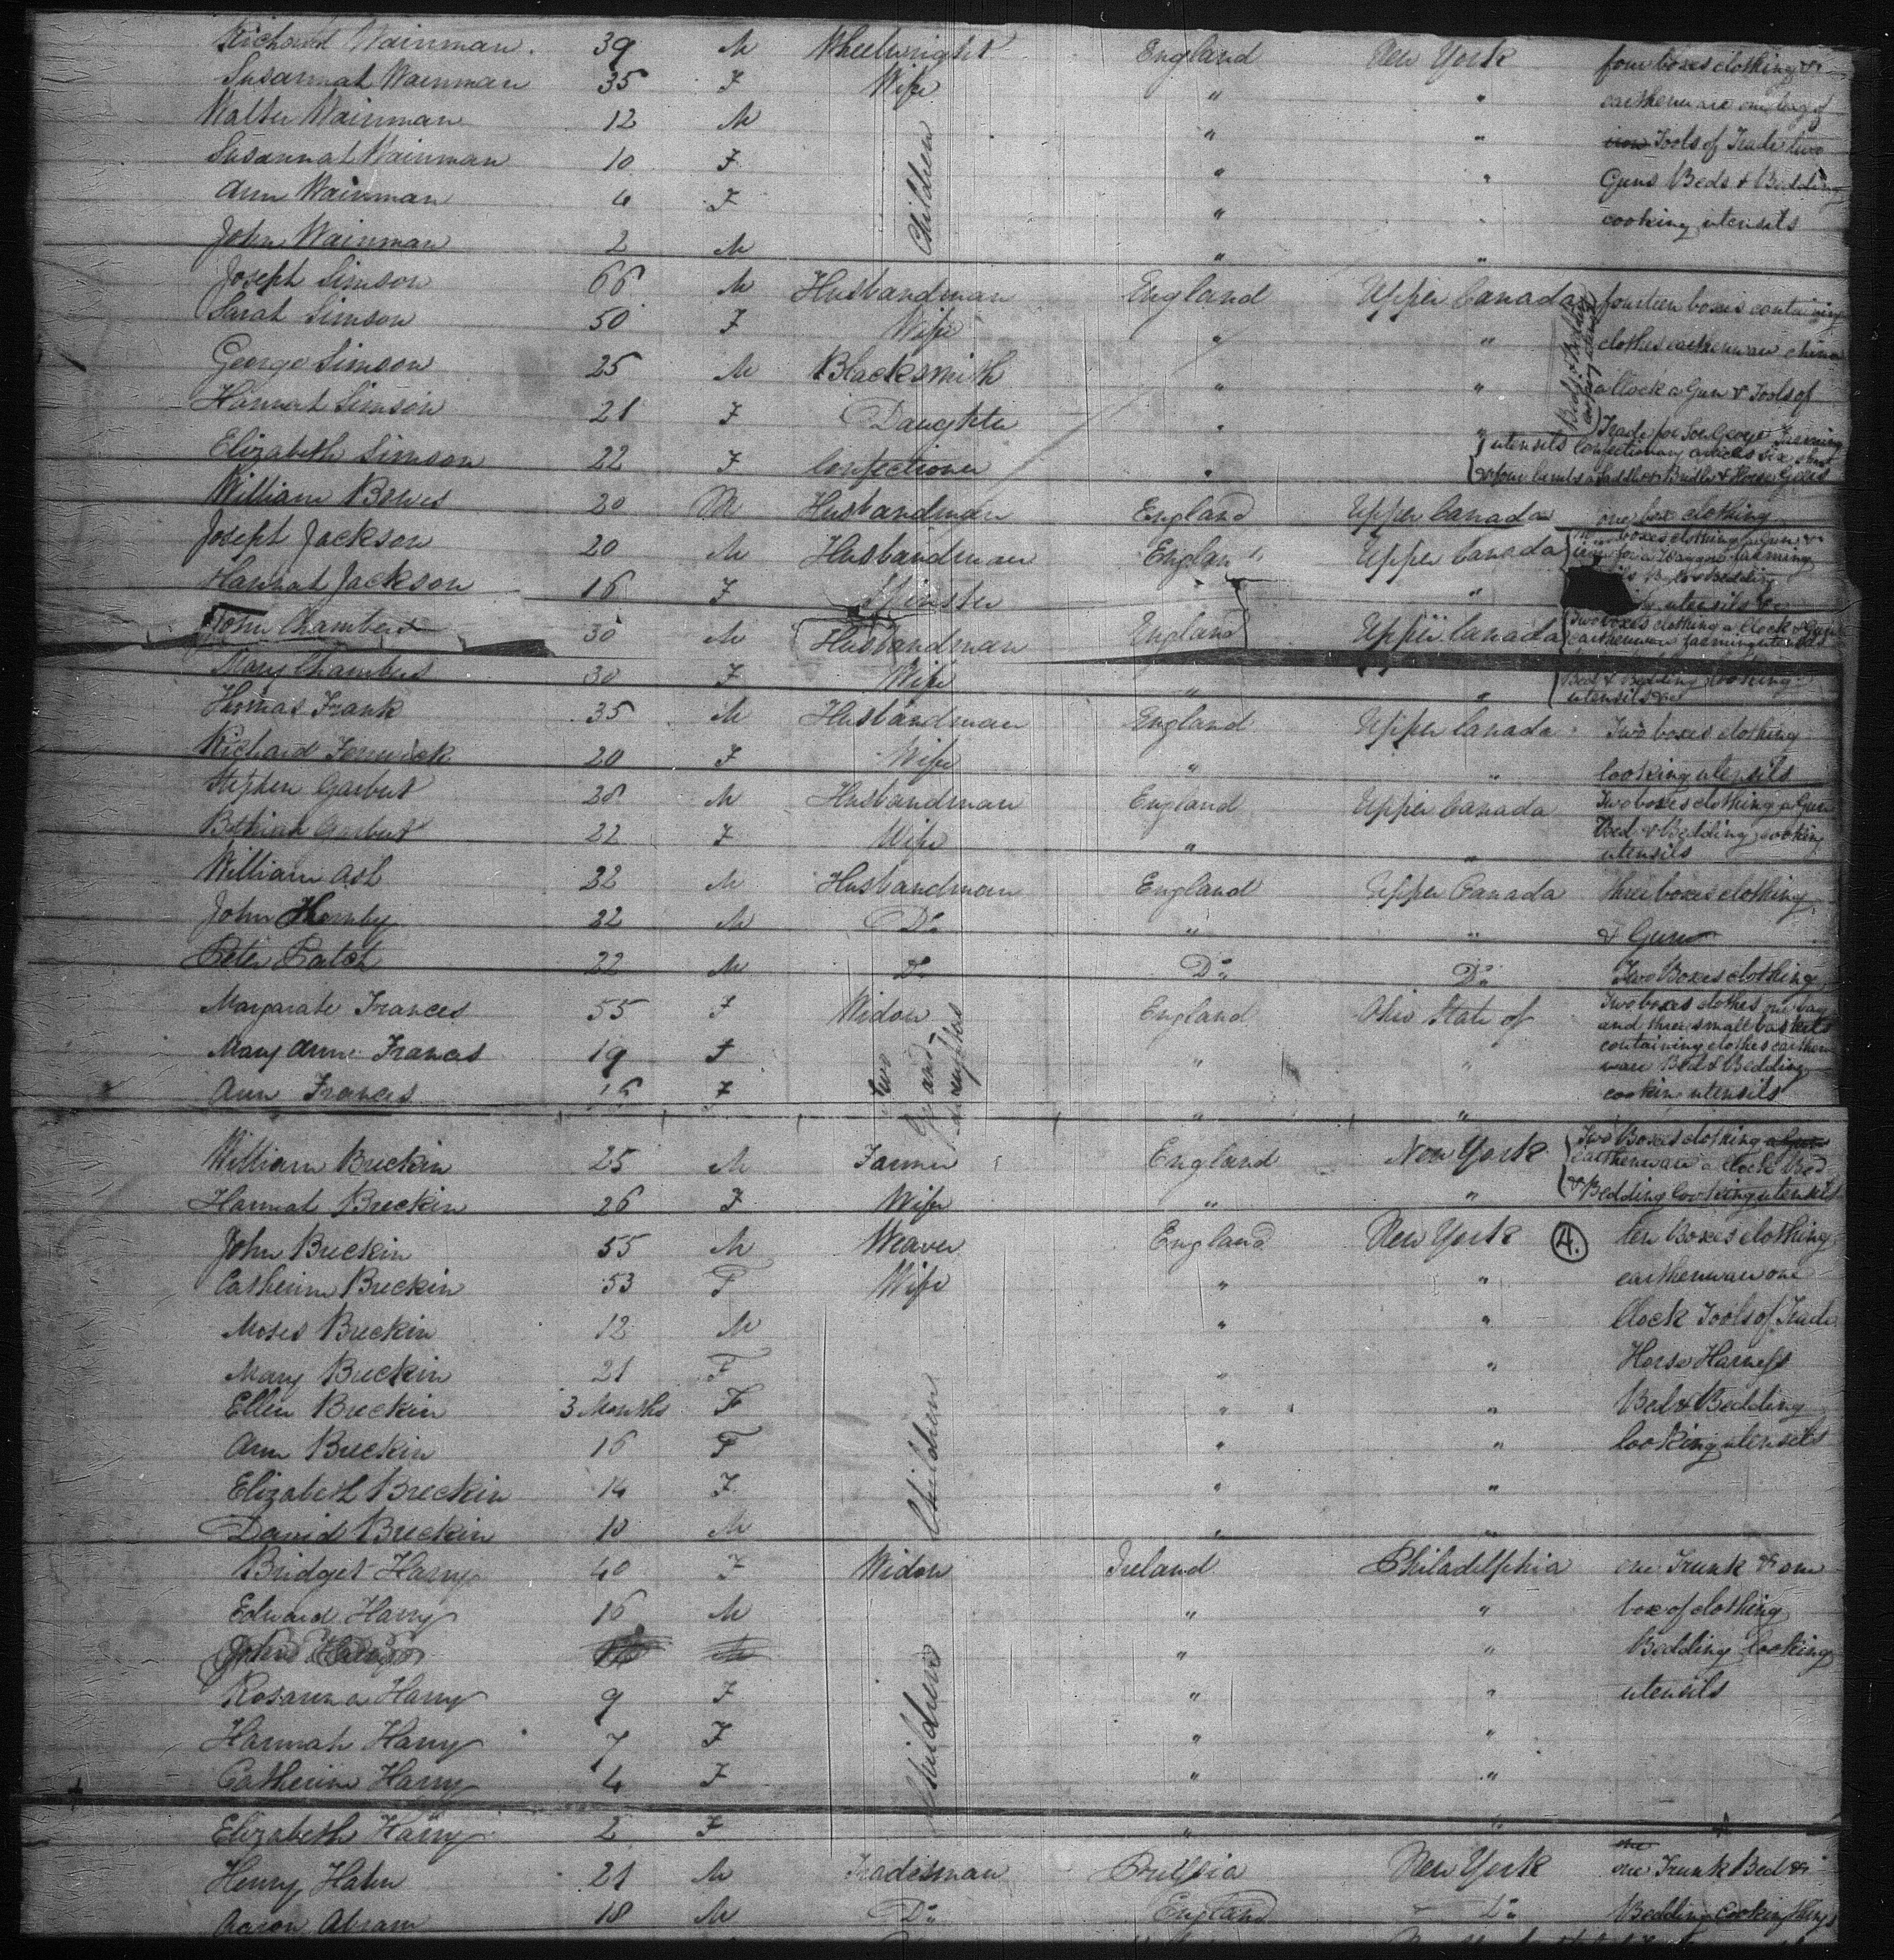 Richard Wainman. 39 M Wheelwright England New York four boxes clothing &
Susannah Wainman 35 F Wife " " earthenware one bag of
Walter Wainman 12 M Children " " Tools of Trade two
Susannah Wainman 10 F " " Guns Beds & Bedding
Ann Wainman 4 F " " cooking utensils
John Wainman 2 M " "
Joseph Simson 66 M Husbandman England Upper Canada fourteen boxes containing
Sarah Simson 50 F Wife " " clothes earthenware china
George Simson 25 M Blacksmith " " a Clock a Gun & Tools of
Hannah Simson 21 F Daughter " " Trade for Son George Farming
Elizabeth Simson 22 F Confectioner " utensils Confectionary articles six
& four lambs a Saddle & Bridle & Horse Gears
William Bowes 20 M Husbandman England Upper Canada one box clothing
Joseph Jackson 20 M Husbandman England Upper Canada boxes clothing a Gun &
for a Waggon farming
Hannah Jackson 16 F " " utensils &c
John Chambers 30 M Husbandman England Upper Canada Two boxes clothing a Clock & Gun
earthenware farming utensils
Mary Chambers 30 F Wife " " Bed & Bedding Cooking
utensils &c
Thomas Frank 35 M Husbandman England Upper Canada Two boxes clothing
Richard Fenwick 20 F Wife " " Cooking utensils
Stephen Garbut 28 M Husbandman England Upper Canada Two boxes clothing a Gun
Bethiah Garbut 22 F Wife " " Bed & Bedding cooking
utensils
William Ash 22 M Husbandman England Upper Canada three boxes clothing
John Hornby 22 M Do " " & Gun
Peter Patch 22 M Do Do Do Two Boxes clothing
Margarate Frances 55 F Widow England Ohio State of Two boxes clothes one bag
and three small baskets
Mary Anne Frances 19 F Two Grand daughters " " containing clothes earthen
ware Bed & Bedding
Ann Frances 16 F " " cookin utensils
William Breckin 25 M Farmer England New York Two Boxes clothing a Gun
earthenware a clock Bed
Hannah Breckin 26 F Wife " " & Bedding Cooking utensils
John Breckin 55 M Weaver England New York 4. ten Boxes clothing
Catherine Breckin 53 F Wife " " earthenware one
Moses Breckin 12 M Children " " Clock Tools of Trade
Mary Breckin 21 F " " Horse Harness
Ellen Breckin 3 Months F " " Bed & Bedding
Ann Breckin 16 F " " Cooking utensils
Elizabeth Breckin 14 F " "
David Breckin 10 M " "
Bridget Harry 40 F Widow Ireland Philadelphia one Trunk & one
Edward Harry 16 M Children " " box of clothing
John Harry M " " Bedding Cooking
Rosanna Harry 9 F " " utensils
Hannah Harry 7 F " "
Catherine Harry 4 F " "
Elizabeth Harry 2 F " "
Henry Hahn 21 M Tradesman Prussia New York one Trunk Bed &
Aaron Abram 18 M Do England Do Bedding Cooking things